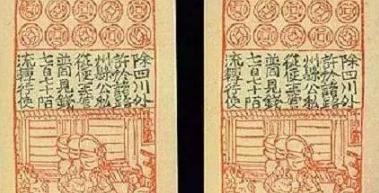 除四川外
許於諸路
州縣公私
從便主管
並同見錢
七百七十陌
流轉行使
除四川外
許於諸路
州縣公私
從便主管
並同見錢
七百七十陌
流轉行使